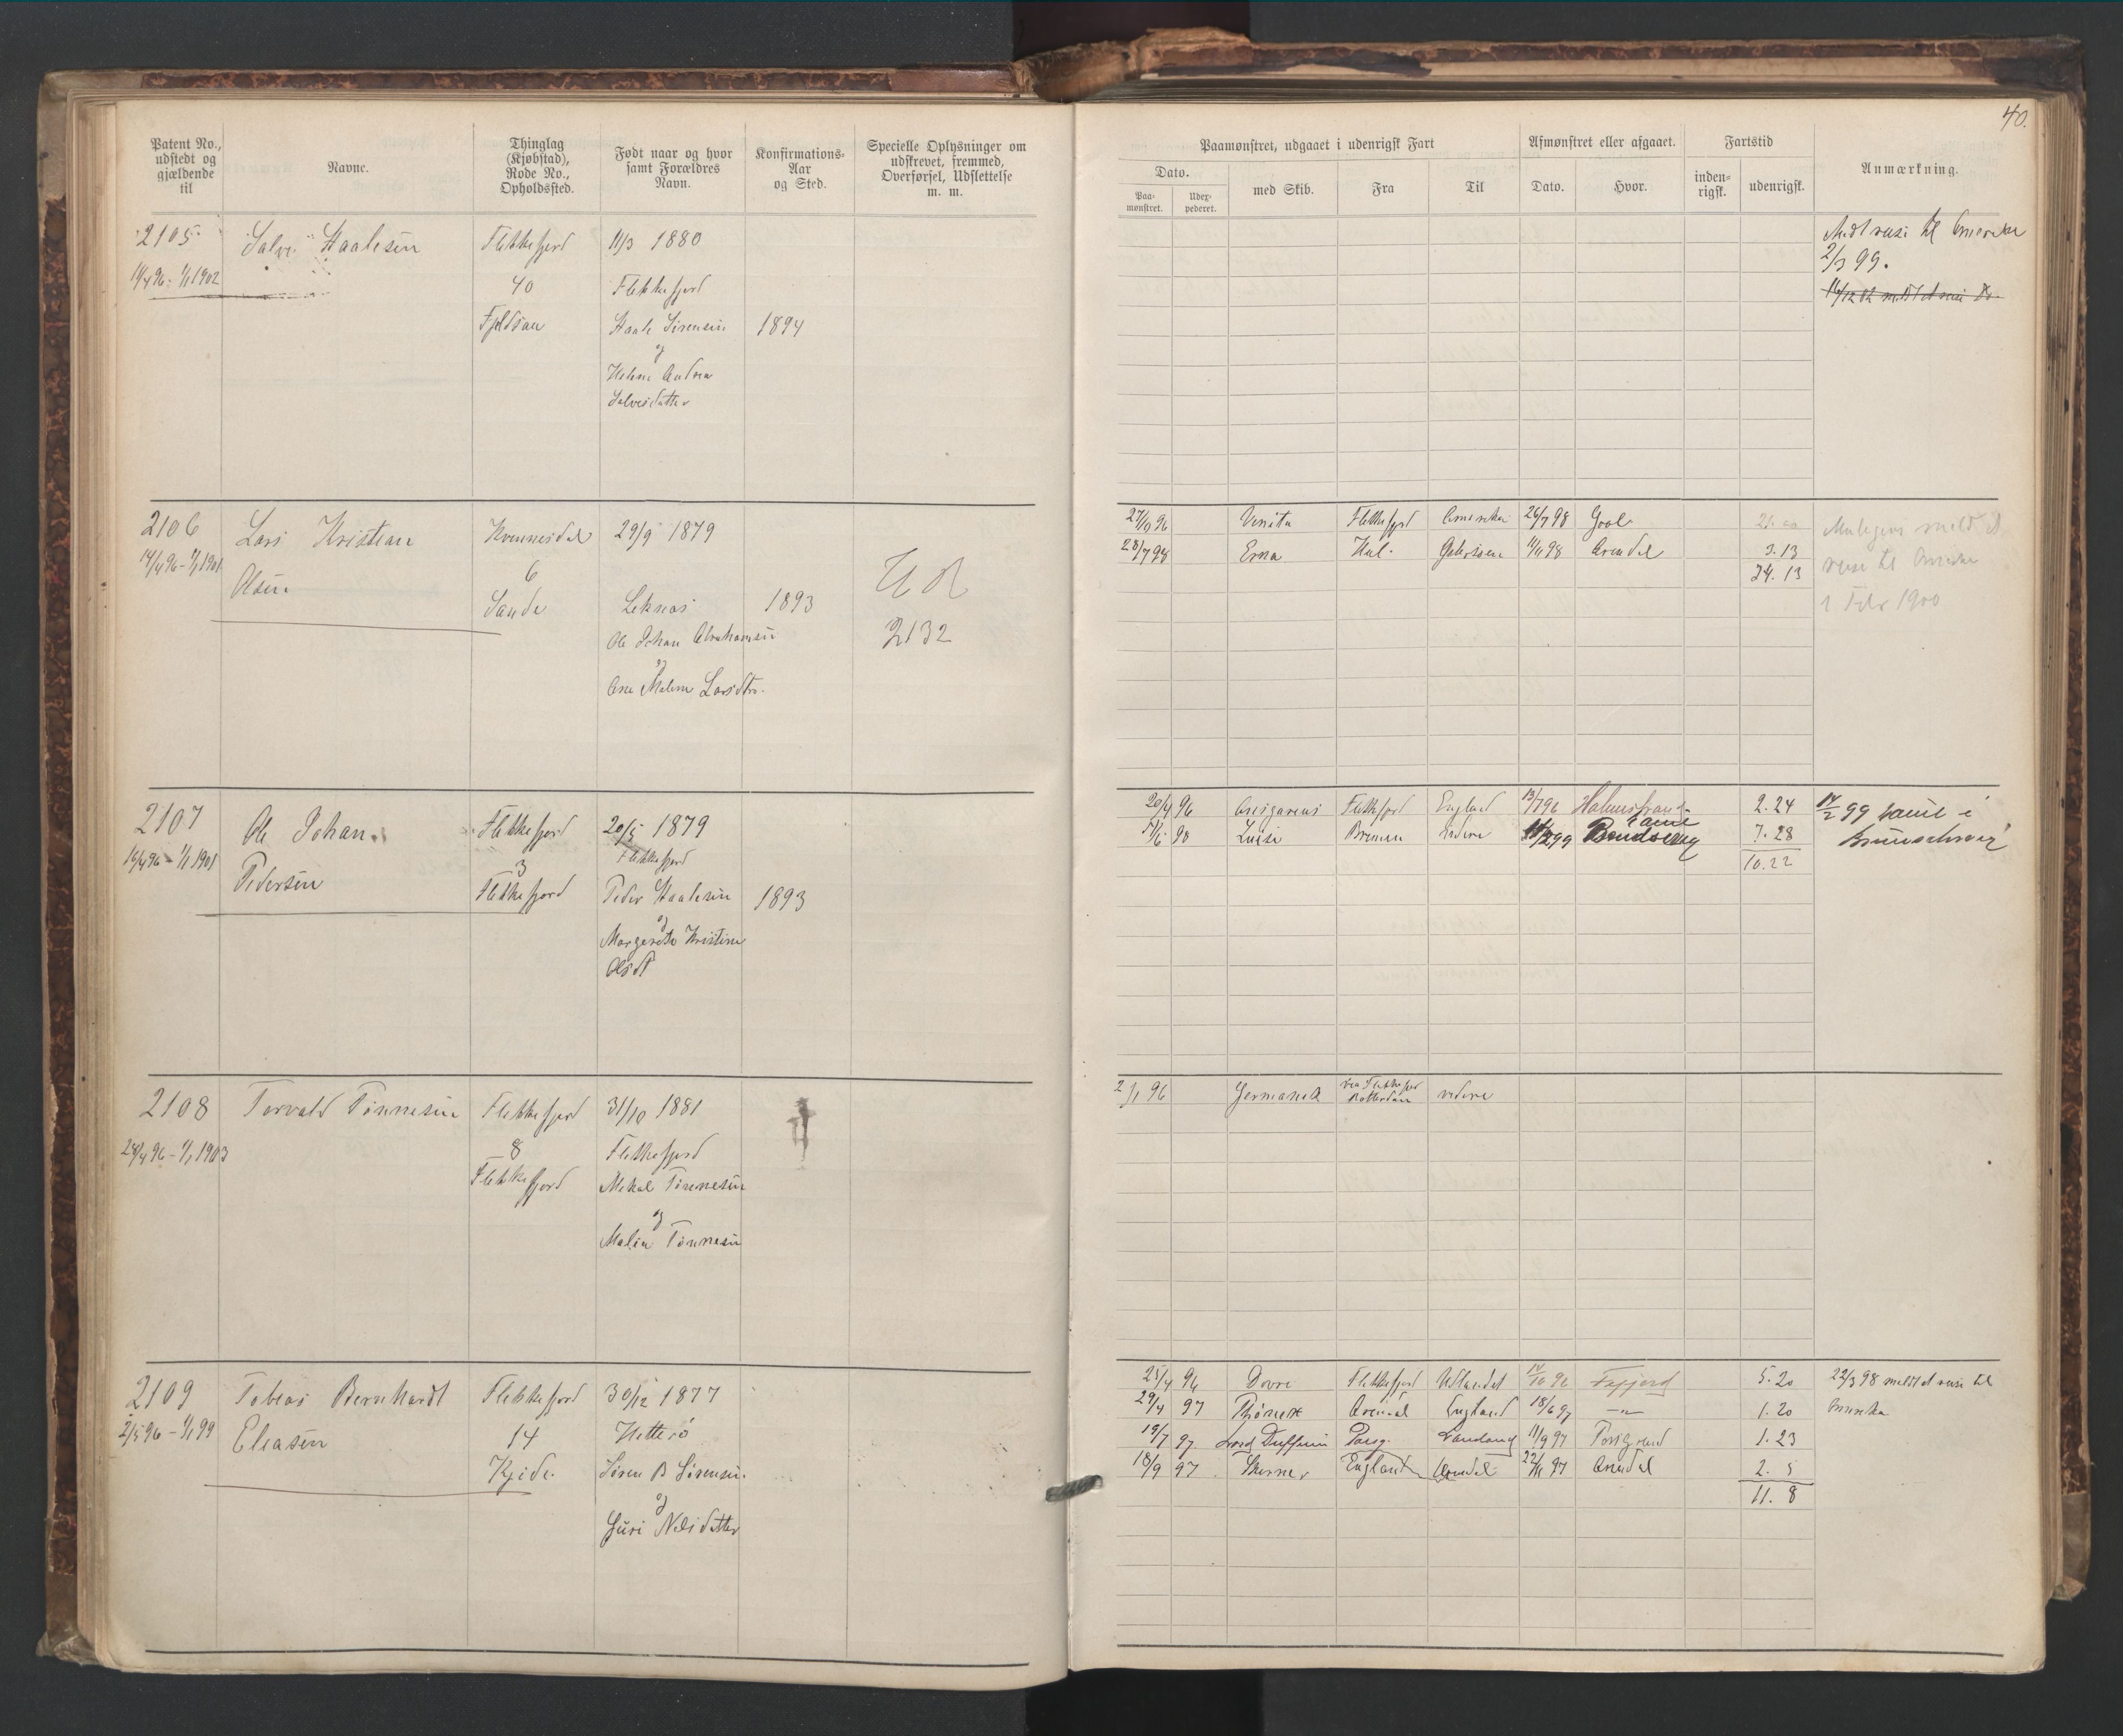 40.
Patent No., udstedt og gjældende til
Navne.
Thinglag (Kjøbstad), Rode No., Opholdssted.
Født naar og hvor samt Forældres Navn.
Konfirmations-Aar og Sted.
Specielle Oplysninger om udskrevet, fremmed, Overførsel, Udslettelse m. m.
Paamønstret, udgaaet i udenrigsk Fart
Dato.
Paa-mønstret.
Udex-pederet.
med Skib.
Fra
Til
Afmønstret eller afgaaet.
Dato.
Hvor.
Fartstid
inden-rigsk.
udenrigsk.
Anmærkning.
2105
Salve Staalesen
Flekkefjord
11/3 1880
11/4 96 - 1/1 1902
40
Flekkefjord
Staale Sørensen
1894
og
Helene Andrea
Salvesdatter
Meldt reise til Amerika
2/3 99.
2106
Lars Kristian
Kvinnesdal
29/9 1879
14/4 96 - 1/1 1901
Olsen
6
Sande
Leknes
1893
Ud
Ole Johan Abrahamsen
2132
og
Ane Malene Larsdtr.
27/10 96 Venita Flekkefjord Amerika 26/7 98 Goole
28/7 98 Erna Hul. 11/11 98 Arendal 3.13
24.13
reise til Amerika
i Febr 1900
2107
Ole Johan
Flekkefjord
20/5 1879
16/4 96 - 1/1 1901
Flekkefjord
Pedersen
3
Flekkefjord
Peder Staalesen
1893
og
Margarete Kristine
Olsdt
20/4 96 Flekkefjord England 13/7 96 2.24
98 Bremen videre 7.28
10.22
14/2 99 rømt i
Braunschweig
2108
Torvald Tønnesen
Flekkefjord
31/10 1881
28/4 96 - 1/1 1903
8
Flekkefjord
Flekkefjord
Mikal Tønnesen
og
Malin Tønnesen
2/1 96 Germanek via Flekkefjord Rotterdam videre
2109
Tobias Bernhardt
Flekkefjord
30/12 1877
2/5 96 - 1/1 99
Eliasen
14
Hitterø
Søren B Sørensen
og
Guri Nilsdatter
25/4 96 Dovre Flekkefjord Udlandet 14/10 96 5.20
29/4 97 Arendal England 18/6 97 -"- 1.20
19/7 97 Lord Dufferin 11/9 97 Porsgrund 1.23
18/9 97 England Arendal 22/11 97 Arendal 2.5
11.8
22/3 98 meldt at reise til
Amerika